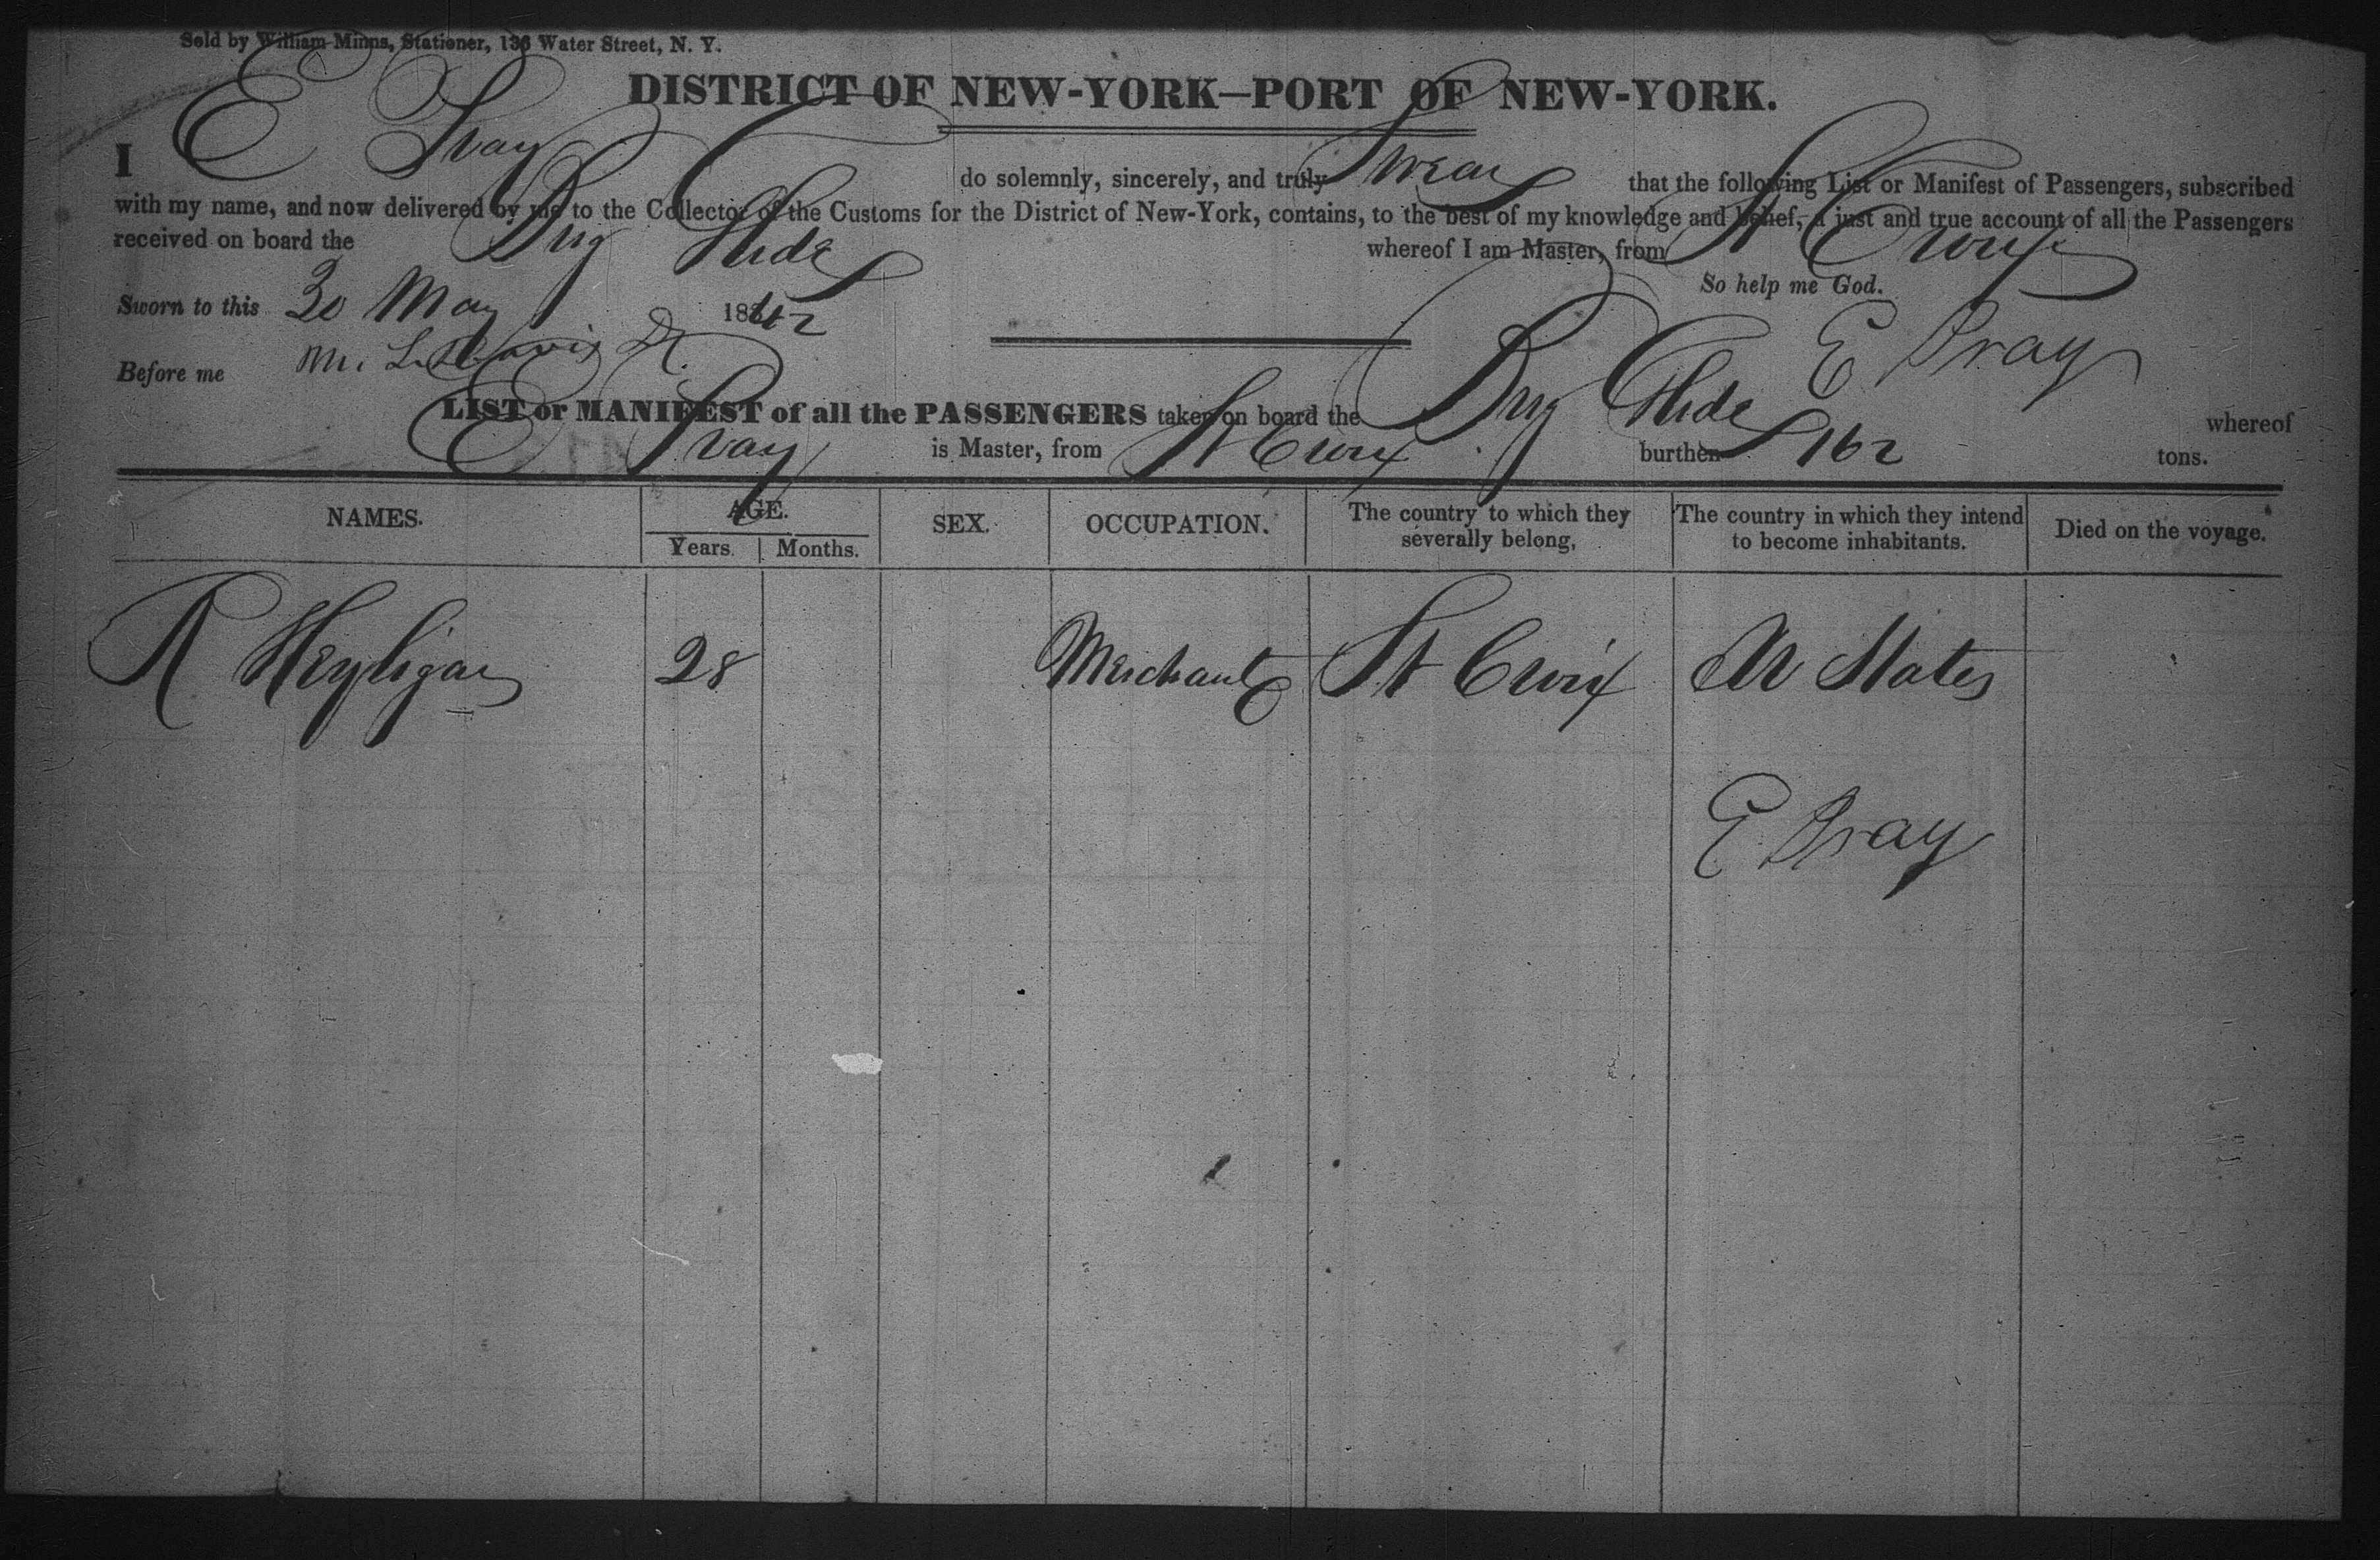 Sold by William Minns, Stationer, 136 Water Street, N. Y.
DISTRICT OF NEW-YORK—PORT OF NEW-YORK.
I E Pray do solemnly, sincerely, and truly Swear that the following List or Manifest of Passengers, subscribed
with my name, and now delivered by me to the Collector of the Customs for the District of New-York, contains, to the best of my knowledge and belief, a just and true account of all the Passengers
received on board the Brig Glide whereof I am Master, from St Croix
So help me God.
Sworn to this 30 May 1842
Before me M. L. Davis E Pray
LIST or MANIFEST of all the PASSENGERS taken on board the Brig Glide whereof
E Pray is Master, from St Croix burthen 162 tons.
NAMES. AGE. SEX. OCCUPATION. The country to which they severally belong, The country in which they intend to become inhabitants. Died on the voyage.
Years. Months.
R Heyligar 28 Merchant St Croix U States
E Pray